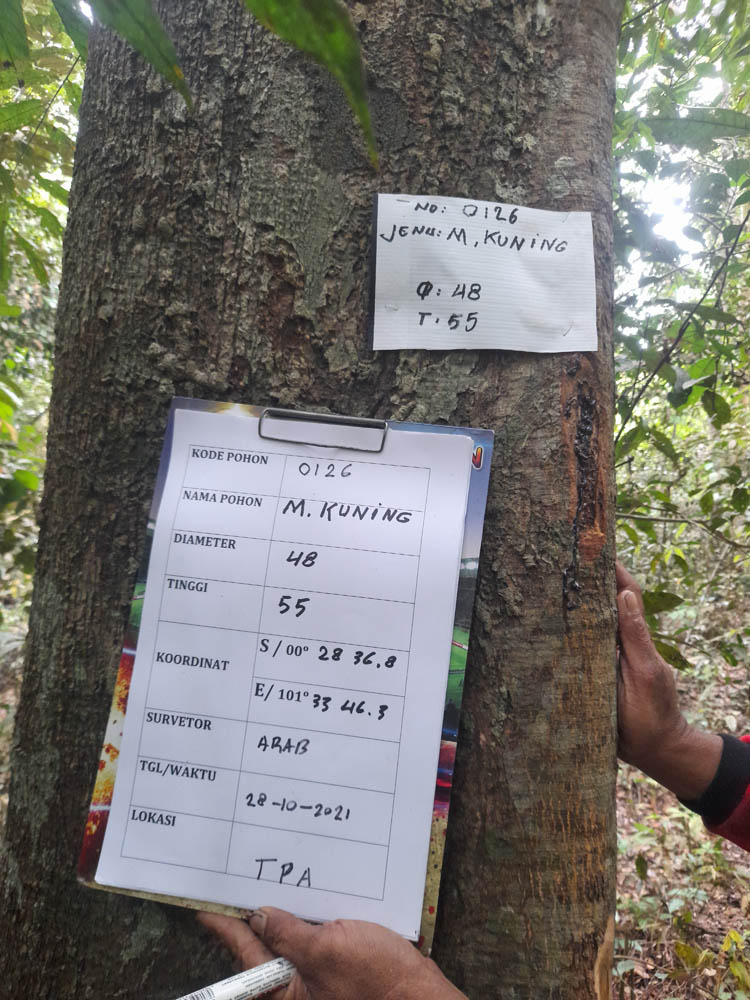 NO: 0126
JENIS: M. KUNING
Φ: 48
T. 55
KODE POHON 0126
NAMA POHON M. KUNING
DIAMETER 48
TINGGI 55
KOORDINAT S / 00° 28 36.8
E/ 101° 33 46.3
SURVETOR ARAB
TGL/WAKTU 28-10-2021
LOKASI TPA